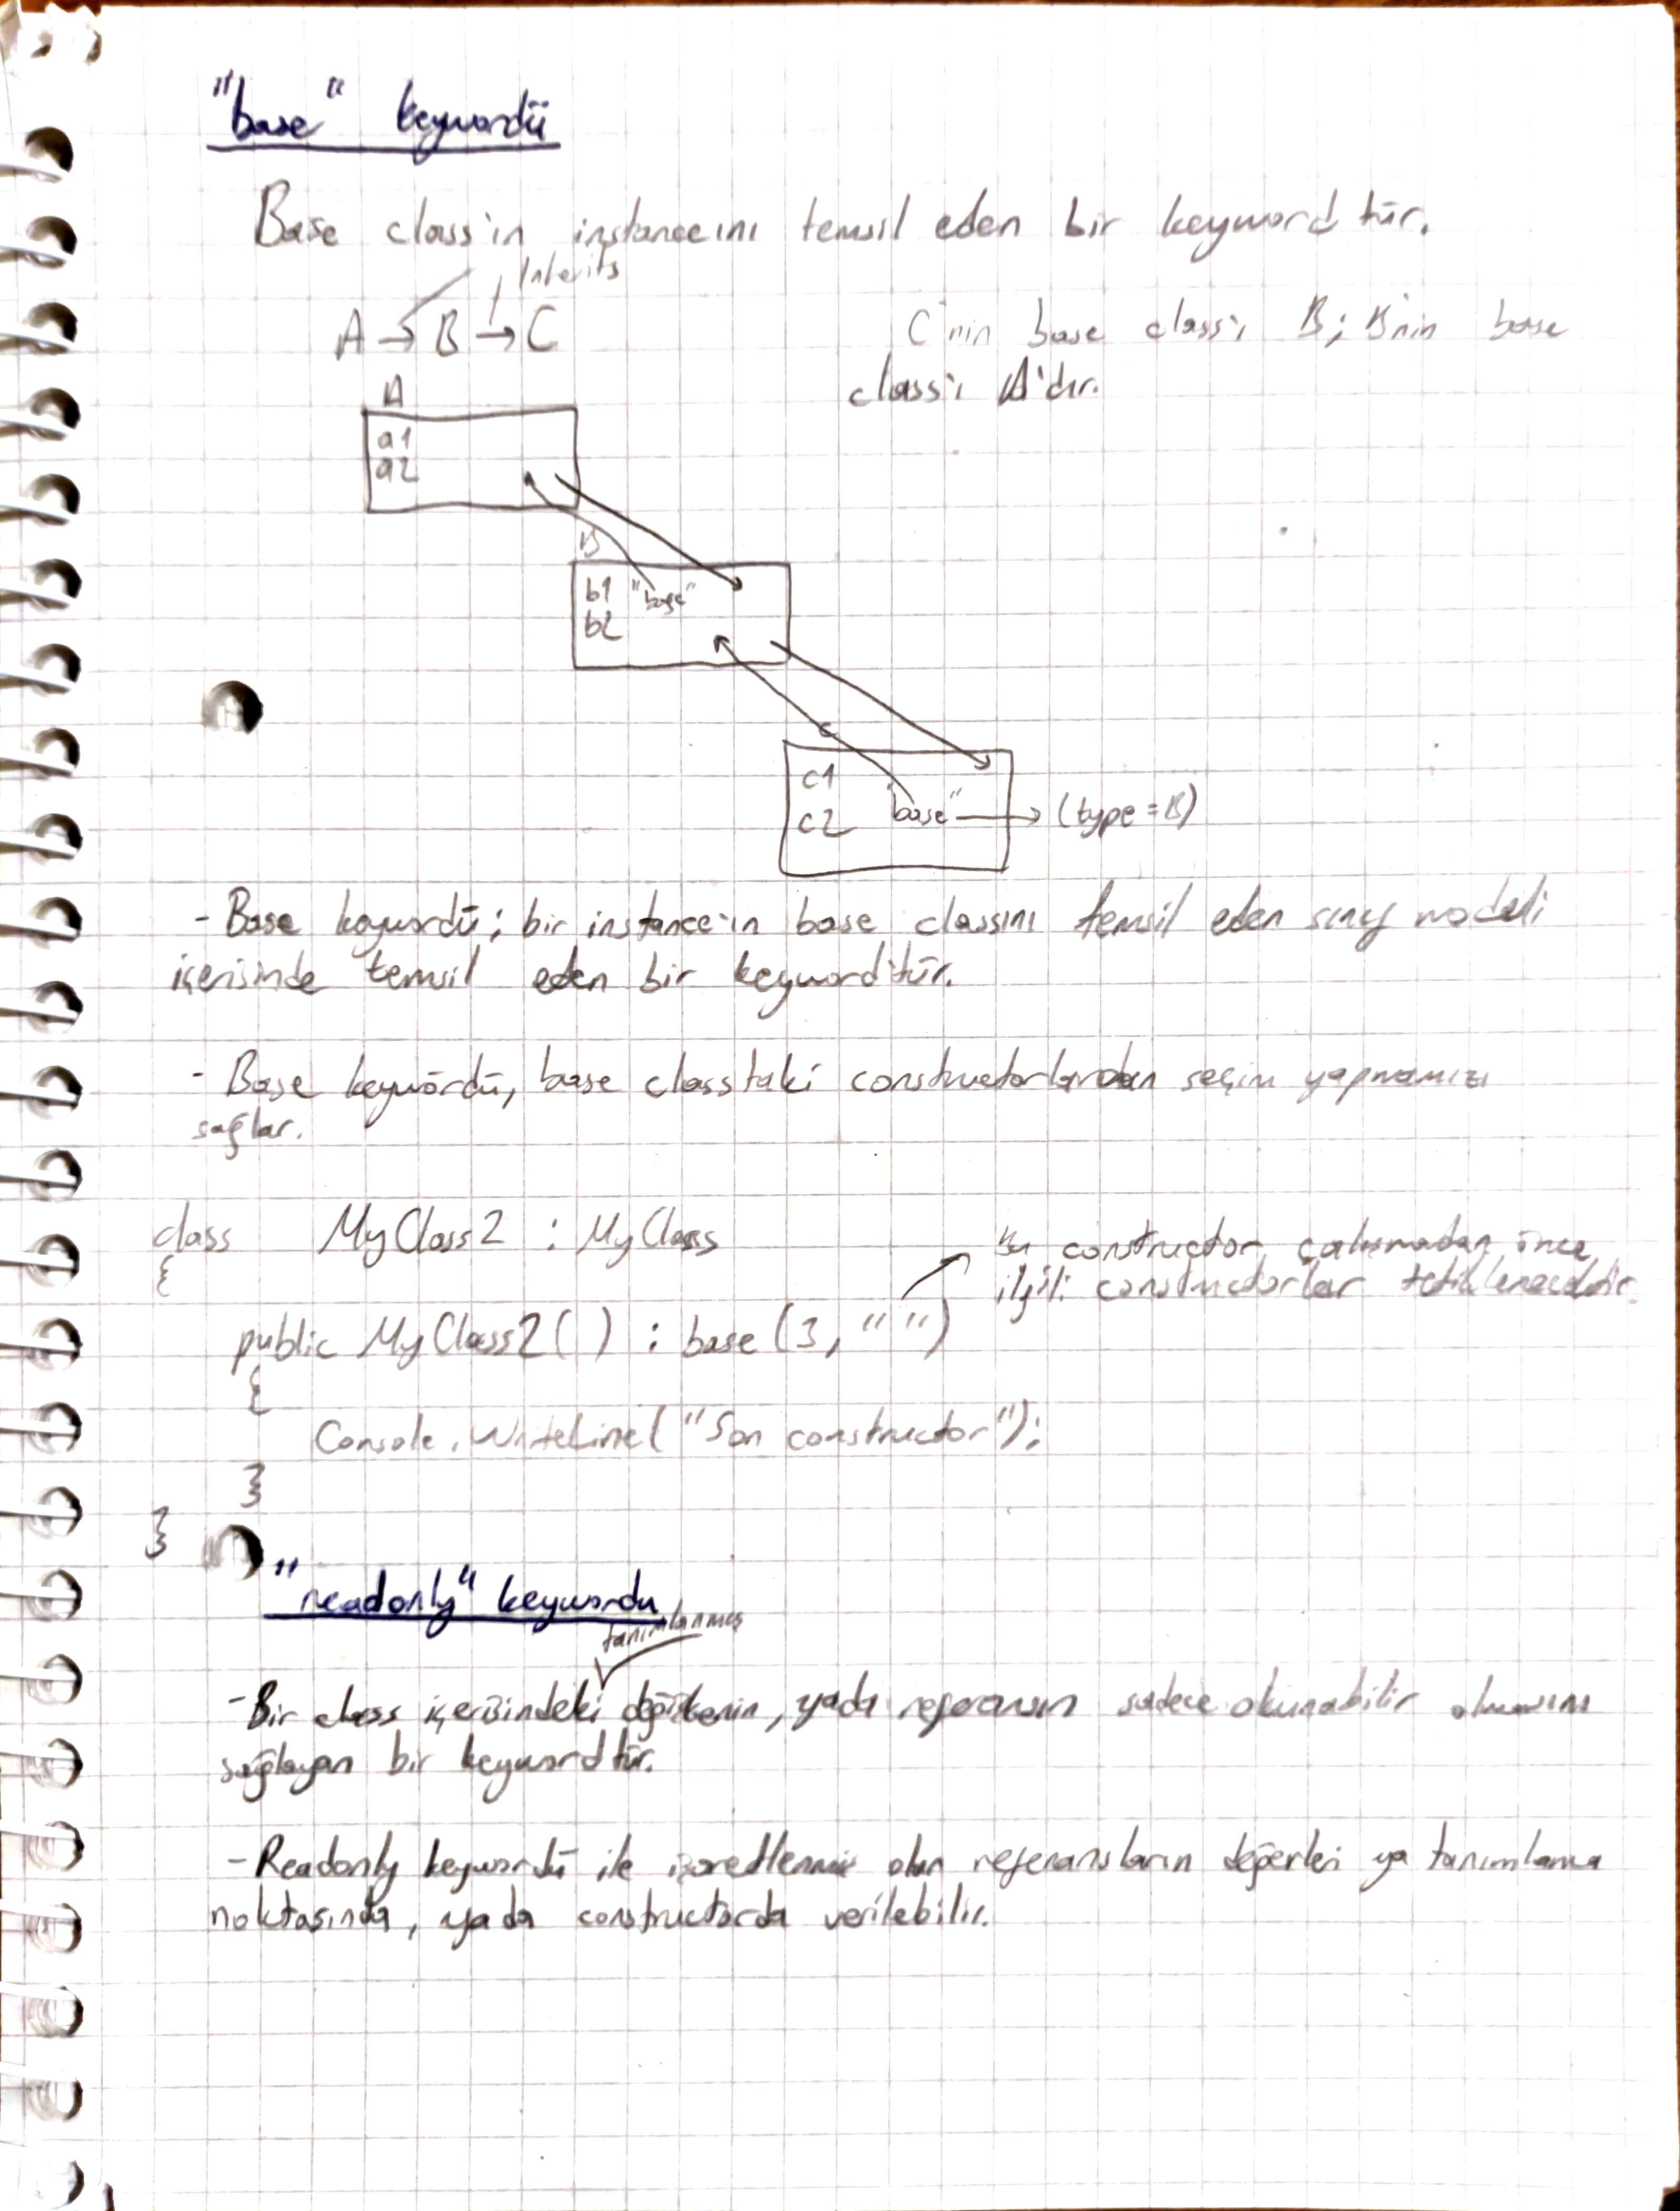 "base" keywordü
Base class'in instanceını temsil eden bir keyword tür.
Inherits
A → B → C
C'nin base class'ı B; B'nin base
class'ı A'dır.
A
a1
a2
B
b1 "base"
b2
C
c1
c2 "base" → (type = B)
- Base keywordü; bir instance'ın base classını temsil eden sınıf modeli
içerisinde temsil eden bir keyword'tür.
- Base keywördü, base classtaki constructorlardan seçim yapmamızı
sağlar.
class MyClass2 : MyClass
Bu constructor çalışmadan önce
{
ilgili constructorlar tetiklenecektir.
public MyClass2( ) : base (3, " ")
{
Console.WriteLine( "Son constructor");
}
}
"readonly" keywordu
tanımlanmış
- Bir class içerisindeki değişkenin, yada referansın sadece okunabilir olmasını
sağlayan bir keyword tür.
- Readonly keywordü ile işaretlenmiş olan referansların değerleri ya tanımlama
noktasında, yada constructorda verilebilir.